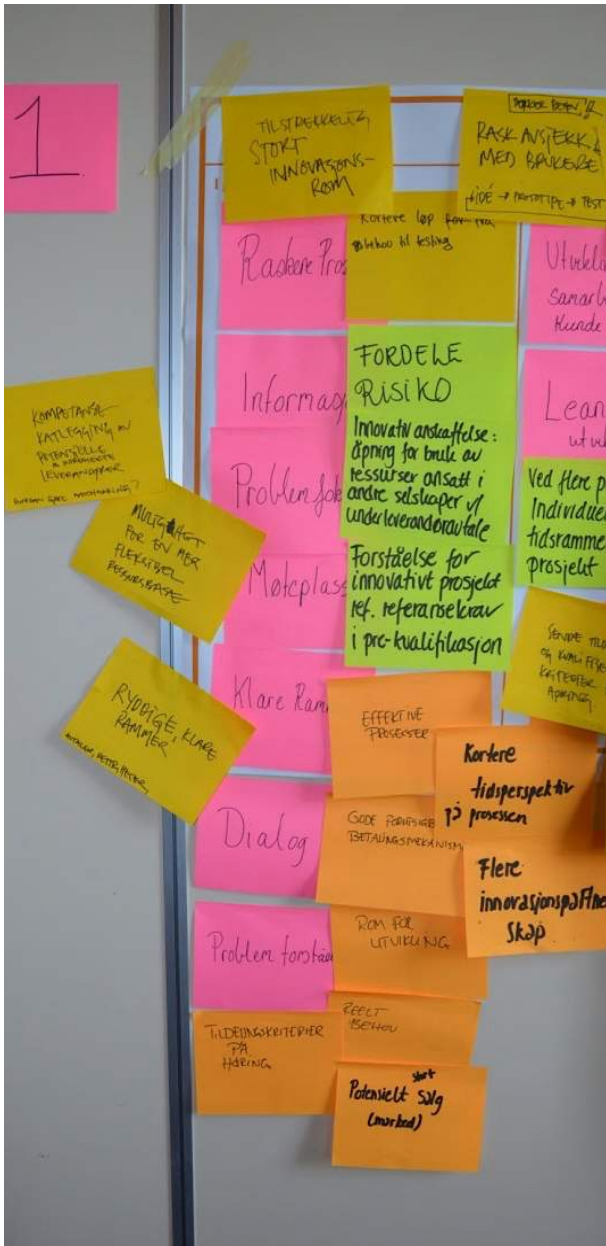 1
TILSTREKKELIG
STORT
INNOVASJONS-
ROM
RASK AVSJEKK
MED BRUKERE
IDÉ → PROTOTYPE → TEST
Kortere løp for fra
behov til testing
Raskere Pros
Utvikle
Samarb
Kunde
FORDELE
RISIKO
Innovativ anskaffelse:
åpning for bruk av
ressurser ansatt i
andre selskaper v/
underleverandøravtale
Informasj
Lean
utvik
KOMPETANSE
KATLEGGING AV
POTENSIELLE
LEVERANDØRER
Problem
Ved flere p
Individue
tidsramme
prosjekt
MULIGHET
FOR EN MER
FLEKSIBEL
RESSURSBASE
Møteplass
Forståelse for
innovativt prosjekt
ref. referansekrav
i pre-kvalifikasjon
SENDE
OG KVALIFISE
KRITERIER
Klare Ram
RYDDIGE, KLARE
RAMMER
EFFEKTIVE
PROSESSER
Kortere
tidsperspektiv
på prosessen
Dialog
GODE
BETALINGSMEKANISM
Flere
innovasjonspartner
skap
Problem forståe
ROM FOR
UTVIKLING
TILDELINGSKRITERIER
PÅ
HØRING
REELT
BEHOV
Potensielt stort salg
(marked)